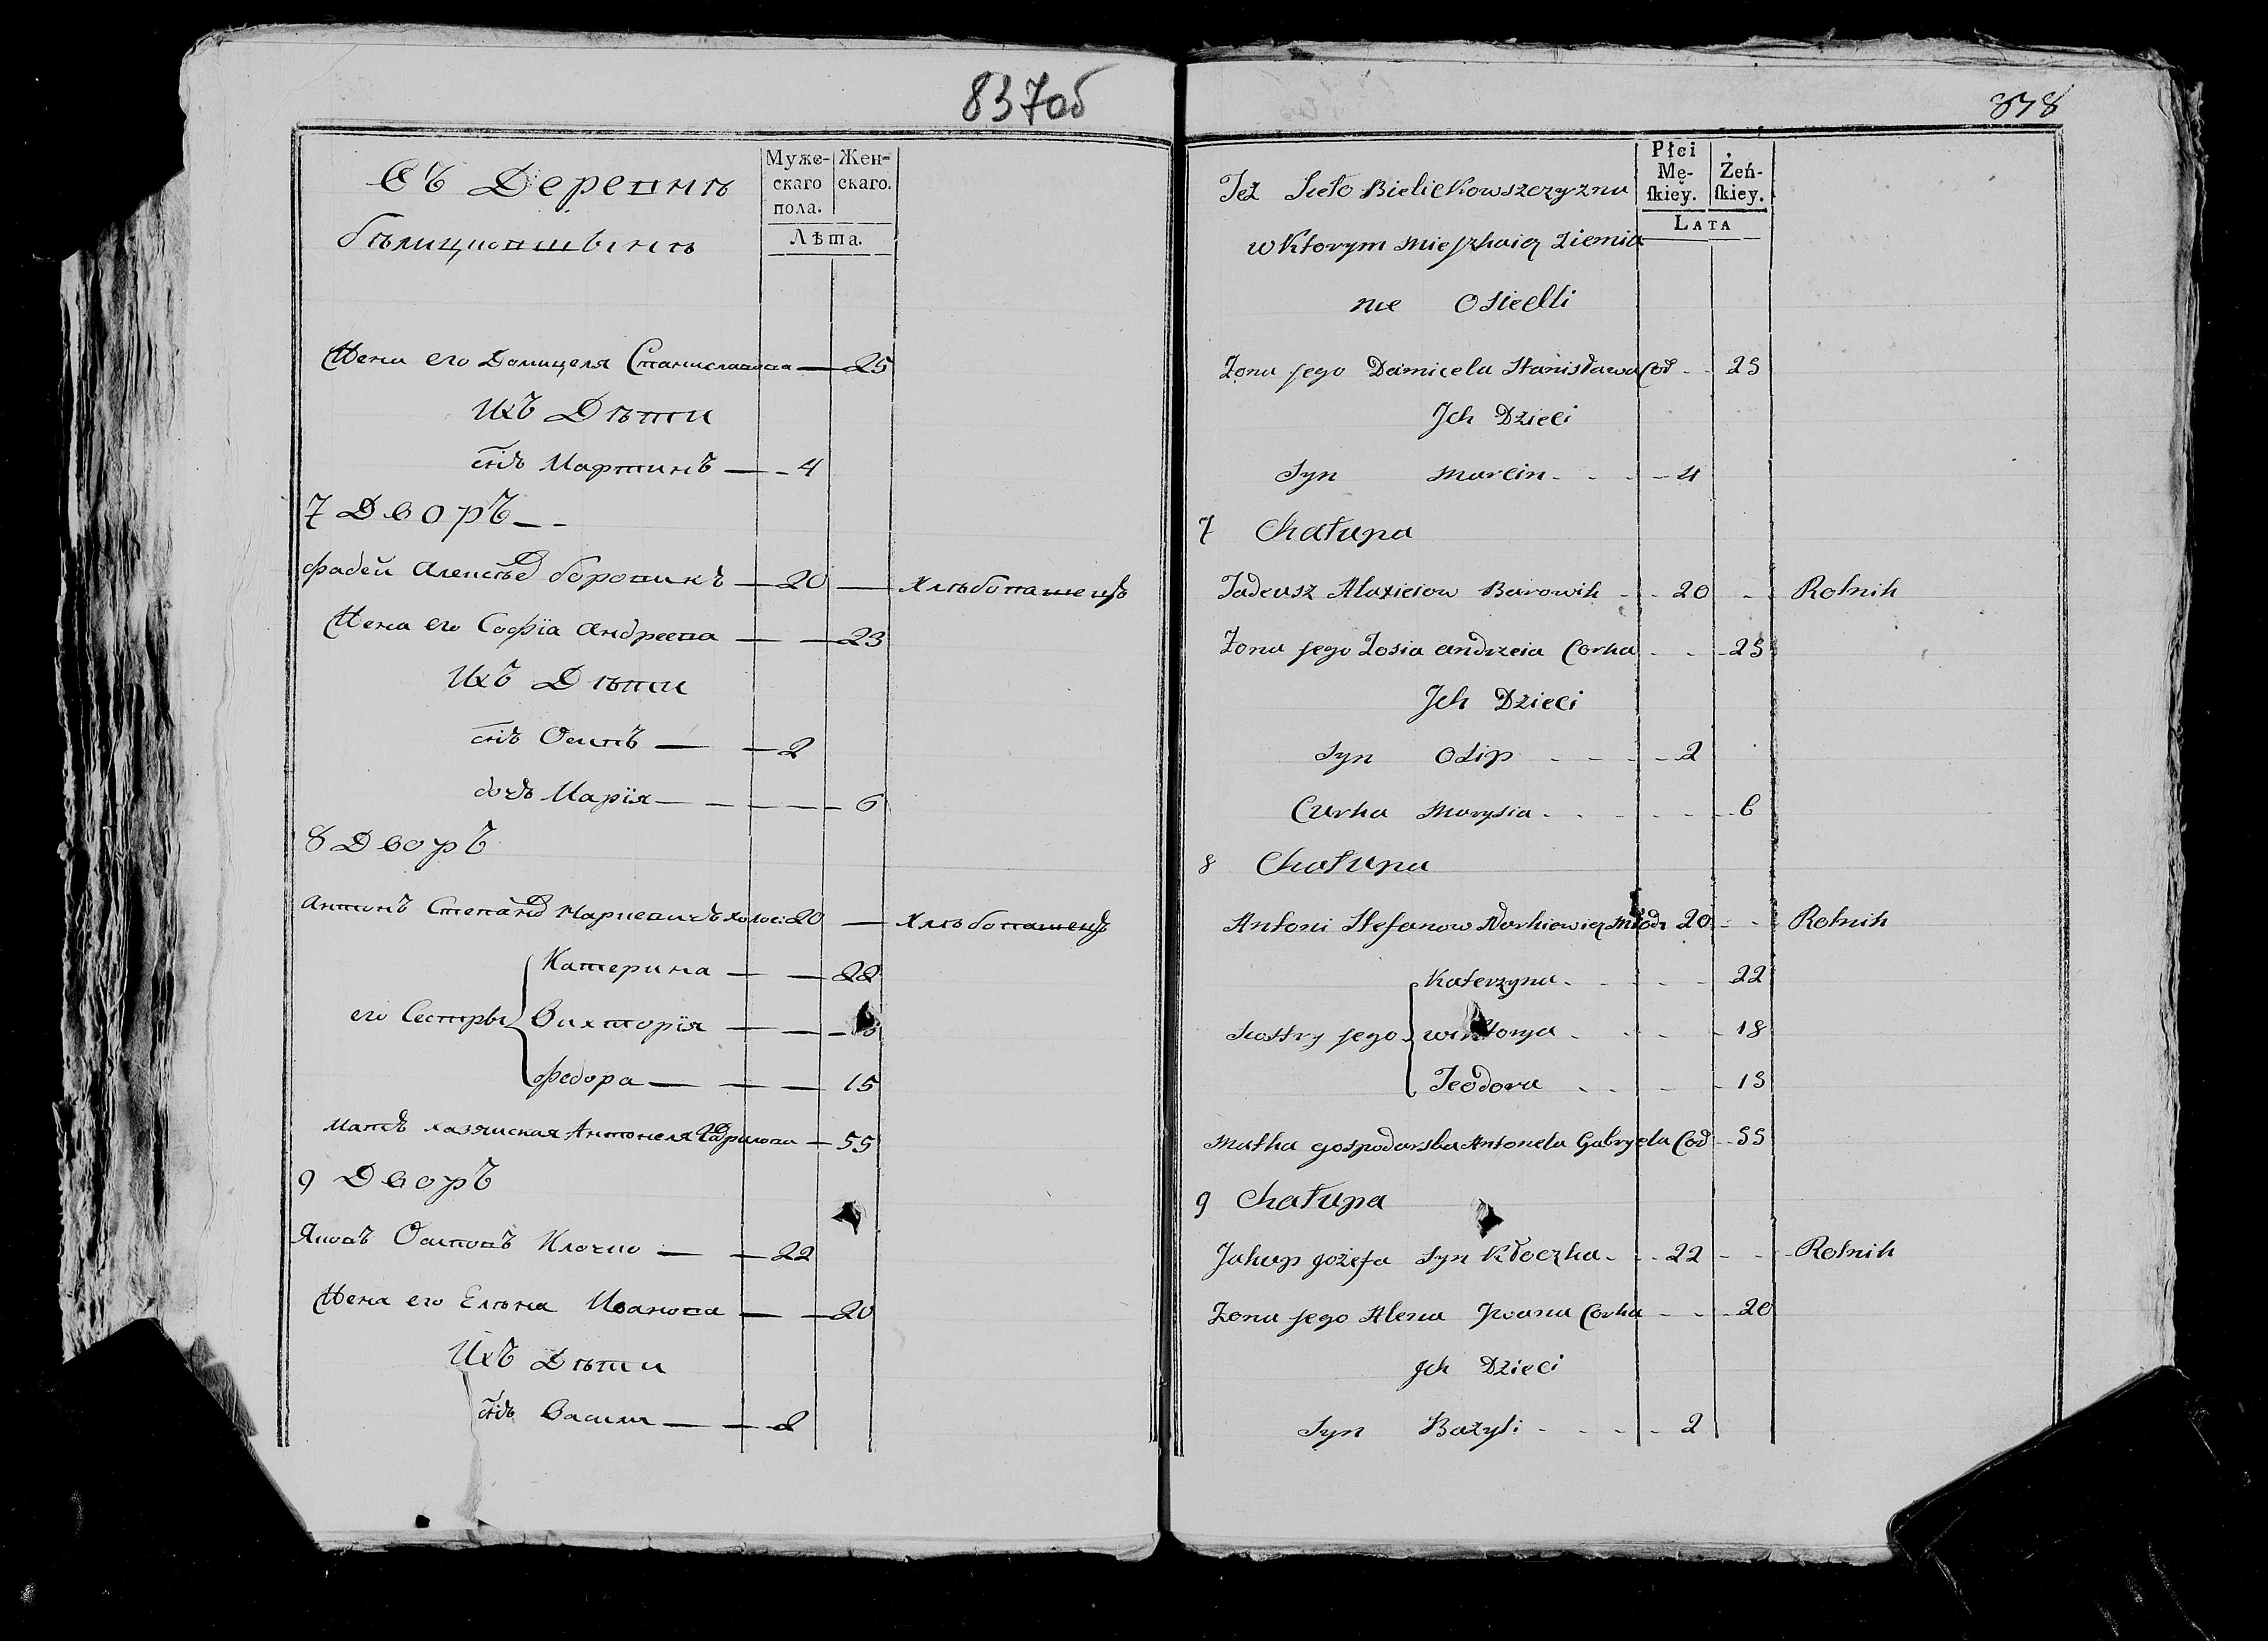 837об
Въ Деревнѣ
бѣлицковшизнѣ
Муже-
скаго
пола.
Жен-
скаго.
Лѣта.
Жена его Домицеля Станиславова — 25
Ихъ Дѣти
снъ Мартинъ — - 4
7 Дворъ - -
Фадей Алексѣев боровикъ — 20 — Хлѣбопашецъ
Жена его Софїа Андреева — — 23
Ихъ Дѣти
снъ Осипъ — — 2
дочь Марїя — — — — 6
8 Дворъ
Антонъ Степанов Наркевичъ холос: 20 — Хлѣбопашецъ
Катерина — — 22
его Сестры Викторїя — —
Федора — — — 15
Мать хазяиская Антонеля Гаврилова — 55
9 Дворъ
Яковъ Осиповъ Клочко — — 22
Жена его Елѣна Иванова — — 20
Ихъ Дѣти
снъ Васили — — 2
838
Też Sieło Bielickowszczyzna
w Ktorym mieszkaią Ziemia
nie Osiedli
Płci
Mę-
ſkiey.
Żeń-
ſkiey.
LATA
Zona jego Damicela Stanisława Cod - - 25
Jch Dzieci
Syn Marcin - - - 4
7 Chałupa
Tadeusz Alaxieiow Barowik - - 20 - Rolnik
Zona jego Zosia andrzeia Corka - - - 23
Jch Dzieci
Syn Osip - - - - 2
Curka Marysia - - - - - - 6
8 Chałupa
Antoni Stefanow Narkiewicz Młodz 20 - - Rolnik
Katerzyna - - - - 22
Siostry jego Wiktorya - - - - 18
Teodora - - - - 15
Matka gospodarska Antonela Gabryela Cod - - 55
9 Chałupa
Jakup Jozefa Syn Kłoczka - - 22 - - - Rolnik
Zona jego Alena Jwana Corka - - - 20
Jch Dzieci
Syn Bazyli - - - - 2